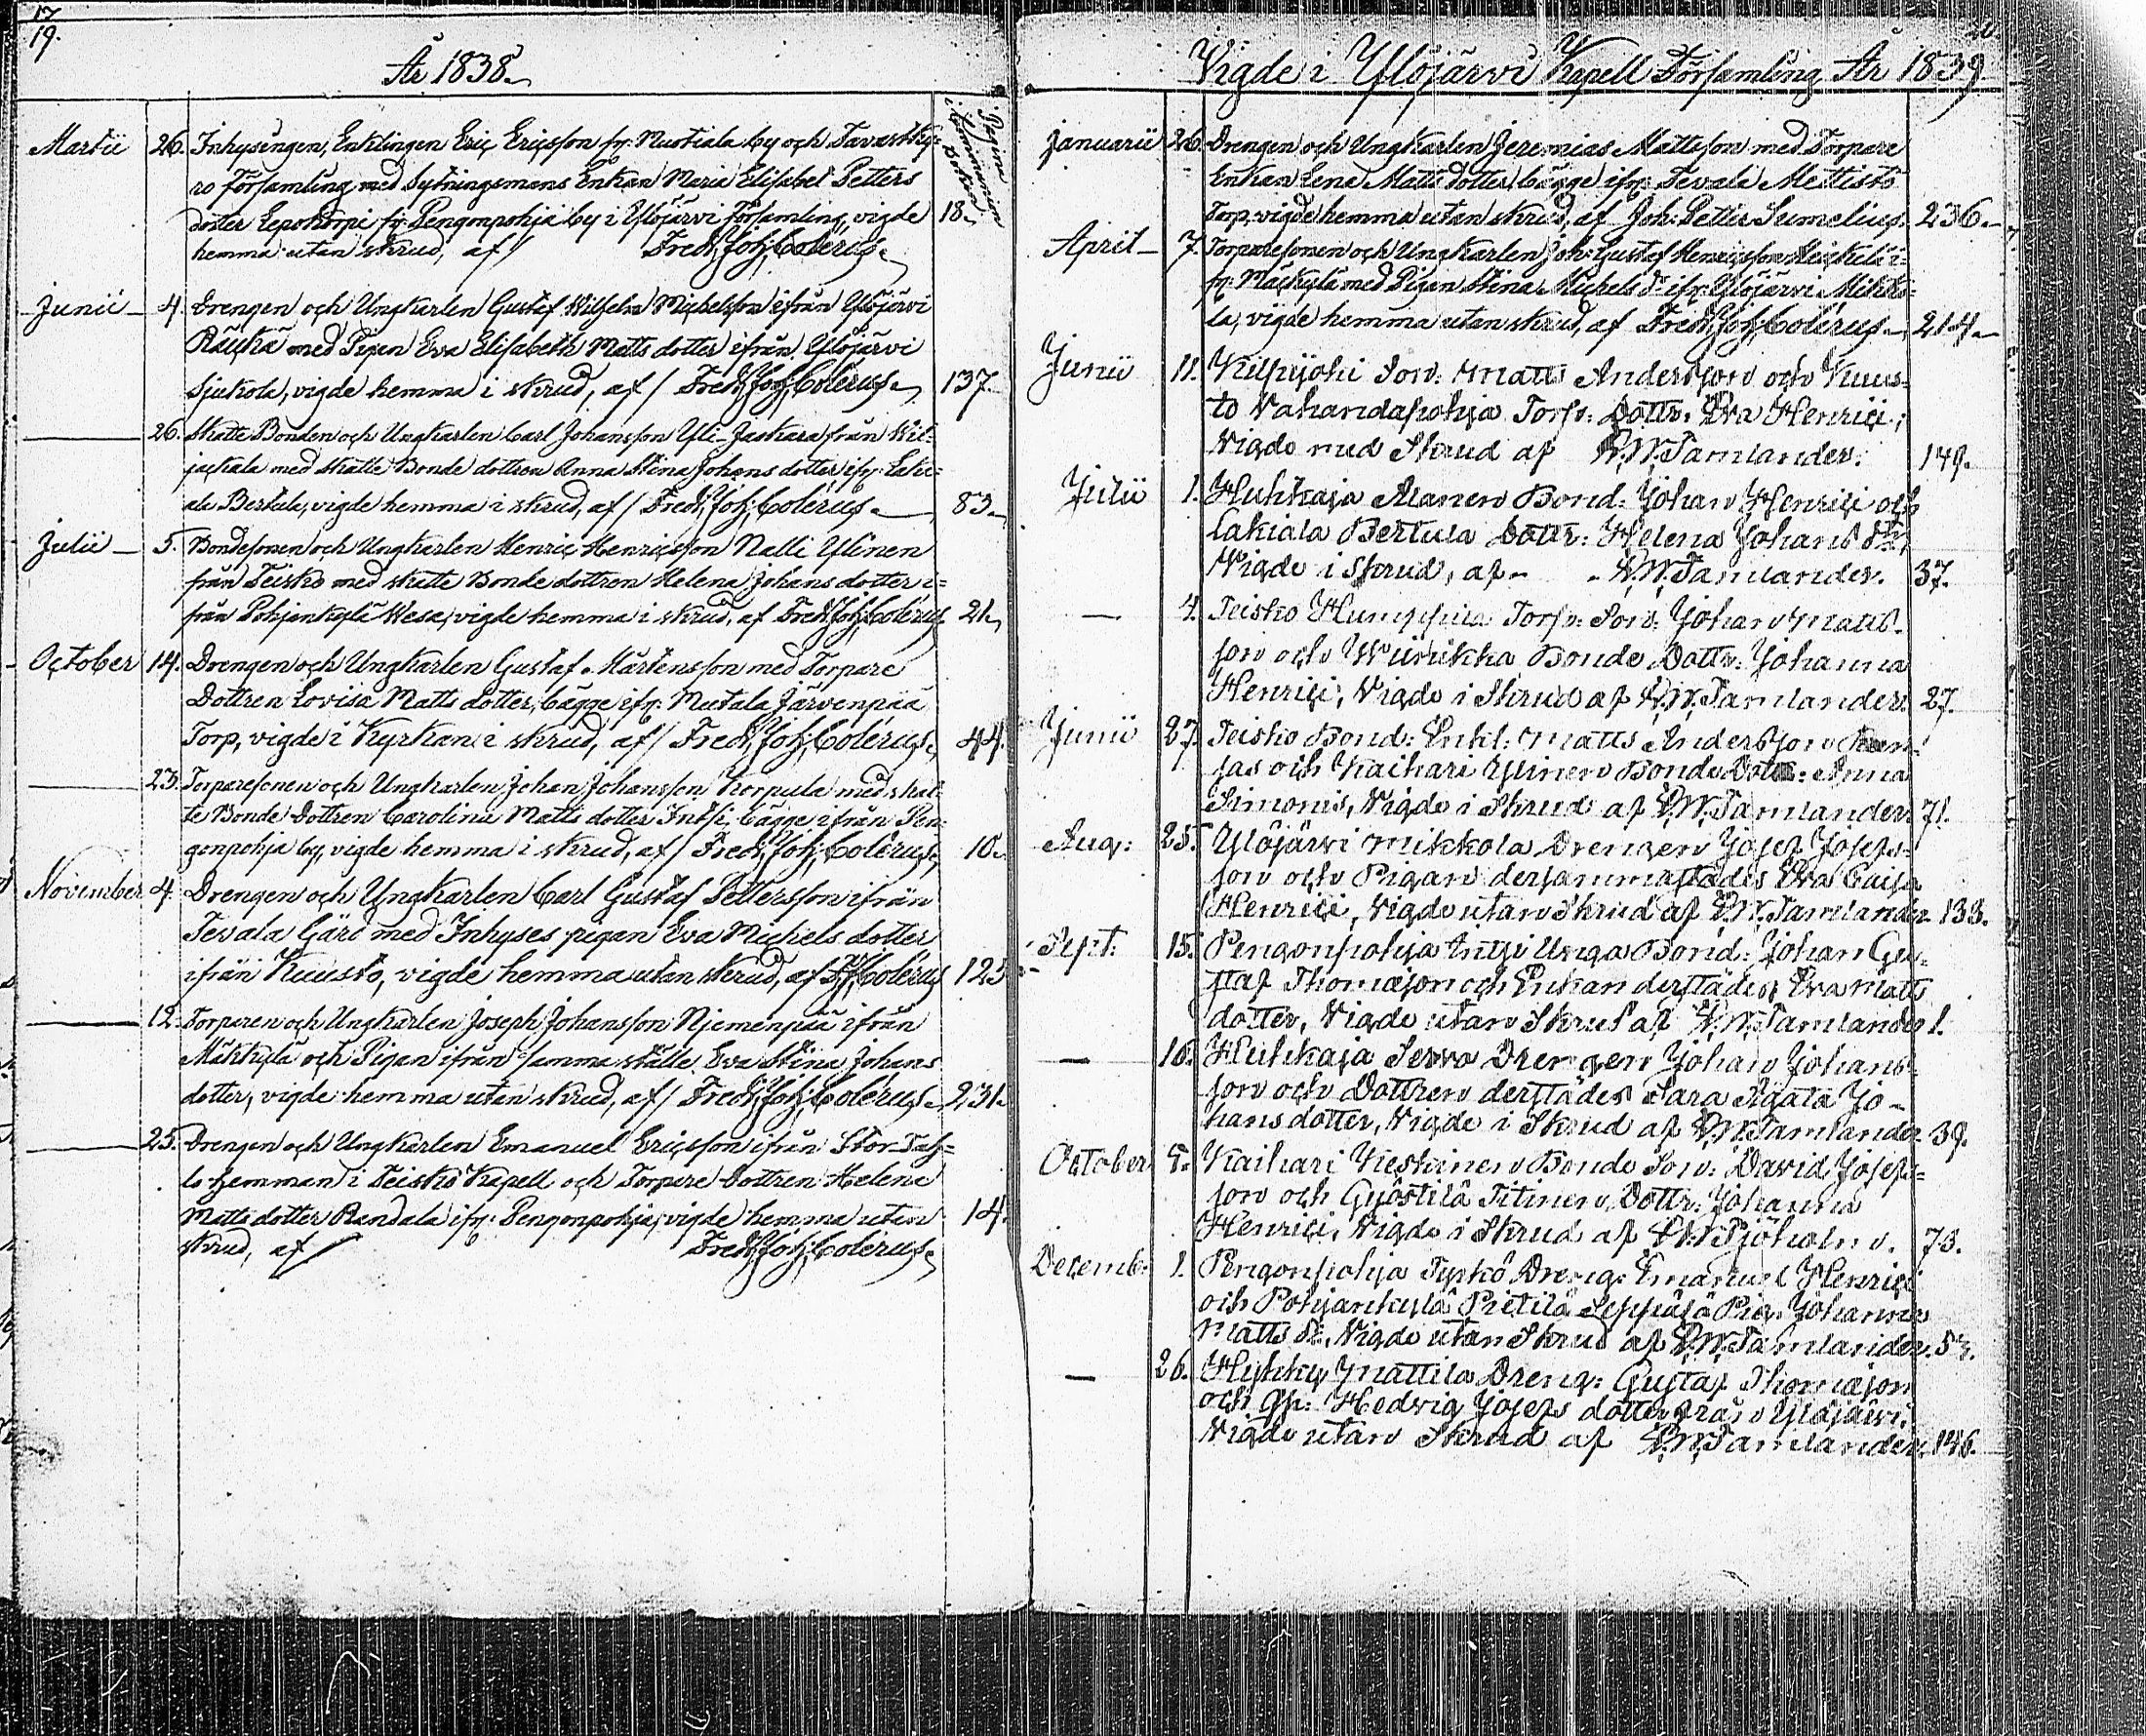 17
19.
År 1838.
Pagina i Communion Boken
Martii 26. Inhysingen, Enklingen Eric Ericsson fr: Mustiala by och Tavastky=
ro Församling med Sytningsmans Enkan Maria Elisabet Petters
dotter Lepokorpi fr: Pengonpohja by i Ylöjärvi Församling, vigde 18.
hemma utan skrud, af / Fredr. Joh. Colérus.
Junii 4. Drengen och Ungkarlen Gustaf Wilhelm Michelsson ifrån Ylöjärvi
Räukä med Pigan Eva Elisabeth Matts dotter ifrån Ylöjärvi
Sjukola, vigde hemma i skrud, af / Fredr. Joh. Colérus. 137.
26. Skatte Bonden och Ungkarlen Carl Johansson Yli-Jaskara från Kil=
jackala med skatte Bonde dottren Anna Stina Johans dotter ifr: Laki=
ala Bertula, vigde hemma i skrud, af / Fredr. Joh. Colérus. 83.
Julii 5. Bondesonen och Ungkarlen Henric Henricsson Nalli Ylinen
från Teisko med skatte Bonde dottren Helena Johans dotter i=
från Pohjankylä Wesa, vigde hemma i skrud, af Fredr. Joh. Colérus 21.
October 14. Drengen och Ungkarlen Gustaf Mårtensson med Torpare
Dottren Lovisa Matts dotter, bägge ifr: Mutala Järvenpää
Torp, vigde i Kyrkan i skrud, af / Fredr. Joh. Colérus. 44.
23. Torparesonen och Ungkarlen Johan Johansson Korpula med skat=
te Bonde Dottren Carolina Matts dotter Intti, bägge ifrån Pen=
gonpohja by, vigde hemma i skrud, af / Fredr. Joh. Colérus. 10.
November 4. Drengen och Ungkarlen Carl Gustaf Pettersson ifrån
Tevala Gård med Inhyses pigan Eva Michels dotter
ifrån Kuusto, vigde hemma utan skrud, af F. J. Colérus 125
12. Torparen och Ungkarlen Joseph Johansson Njemenpää ifrån
Mäkkylä och Pigan ifrån samma ställe Eva Stina Johans
dotter, vigde hemma utan skrud, af / Fredr. Joh. Colérus. 231.
25. Drengen och Ungkarlen Emanuel Ericsson ifrån Stor-Tah=
lo hemman i Teisko Kapell och Torpare Dottren Helena
Matts dotter Randala ifr: Pengonpohja, vigde hemma utan 14.
skrud, af / Fredr. Joh. Colérus.
20.
Vigde i Ylöjärvi Kapell Församling År 1839
Januarii 26. Drengen och Ungkarlen Jeremias Mattsson med Torpare
Enkan Lena Matts dotter, bägge ifr: Tevala Mettistö
Torp, vigde hemma utan skrud, af Joh: Petter Sumelius. 236.
April 7. Torparesonen och Ungkarlen Joh: Gustaf Henricsson Heikkilä i=
fr: Mäkkylä med Pigan Stina Michels dr ifr: Ylöjärvi Mikko=
la, vigde hemma utan skrud, af Fredr. Joh. Colérus. 214.
Junii 11. Kilpijoki Son: Matts Andersson och Kuus=
to Vahandapohja Torp: Dottr: Eva Henrici;
Vigde med Skrud af K. W. Tamlander. 149.
Julii 1. Huhkaja Alanen Bond: Johan Henrici och
Lakiala Bertula Dottr: Helena Johans dtr,
Vigde i Skrud, af - - K. W. Tamlander. 37.
— 4. Teisko Humppila Torp: Son: Johan Matts=
son och Wuirikka Bonde Dottr: Johanna
Henrici, Vigde i Skrud af K. W. Tamlander. 27.
Junii 27. Teisko Bond: Enkl: Matts Andersson
och Kaihari Ylinen Bonde Dottr: Anna
Simonis, Vigde i Skrud af K. W. Tamlander 71.
Aug: 25. Ylöjärvi Mikkola Drengen Josef Josefs=
son och Pigan dersammastädes Eva Caisa
Henrici, Vigde utan Skrud af K. W. Tamlander 133.
Sept: 15. Pengonpohja Intti Unga Bond: Johan Gu=
staf Thomasson och Enkan derstädes Eva Matts
dotter, Vigde utan Skrud af K. W. Tamlander 1.
— 16. Huhkaja Servo Drengen Johan Johans=
son och Dottren derstädes Sara Agata Jo=
hans dotter, Vigde i Skrud af K. W. Tamlander 39.
October 8. Kaihari Keskinen Bonde Son: David Josefs=
son och Gyöstilä Titinen Dottr: Johanna
Henrici, Vigde i Skrud af Sjöholm. 73.
Decemb: 1. Pengonpohja Tyrkö Dreng: Emanuel Henrici
och Pohjankylä Pietilä Seppälä Pig: Johanna
Matts dr, Vigde utan Skrud af K. W. Tamlander.
— 26. Hykky Mattila Dreng: Gustaf Thomasson
och Hedvig Josefs dotter från Ylöjärvi,
Vigde utan Skrud af K. W. Tamlander. 146.